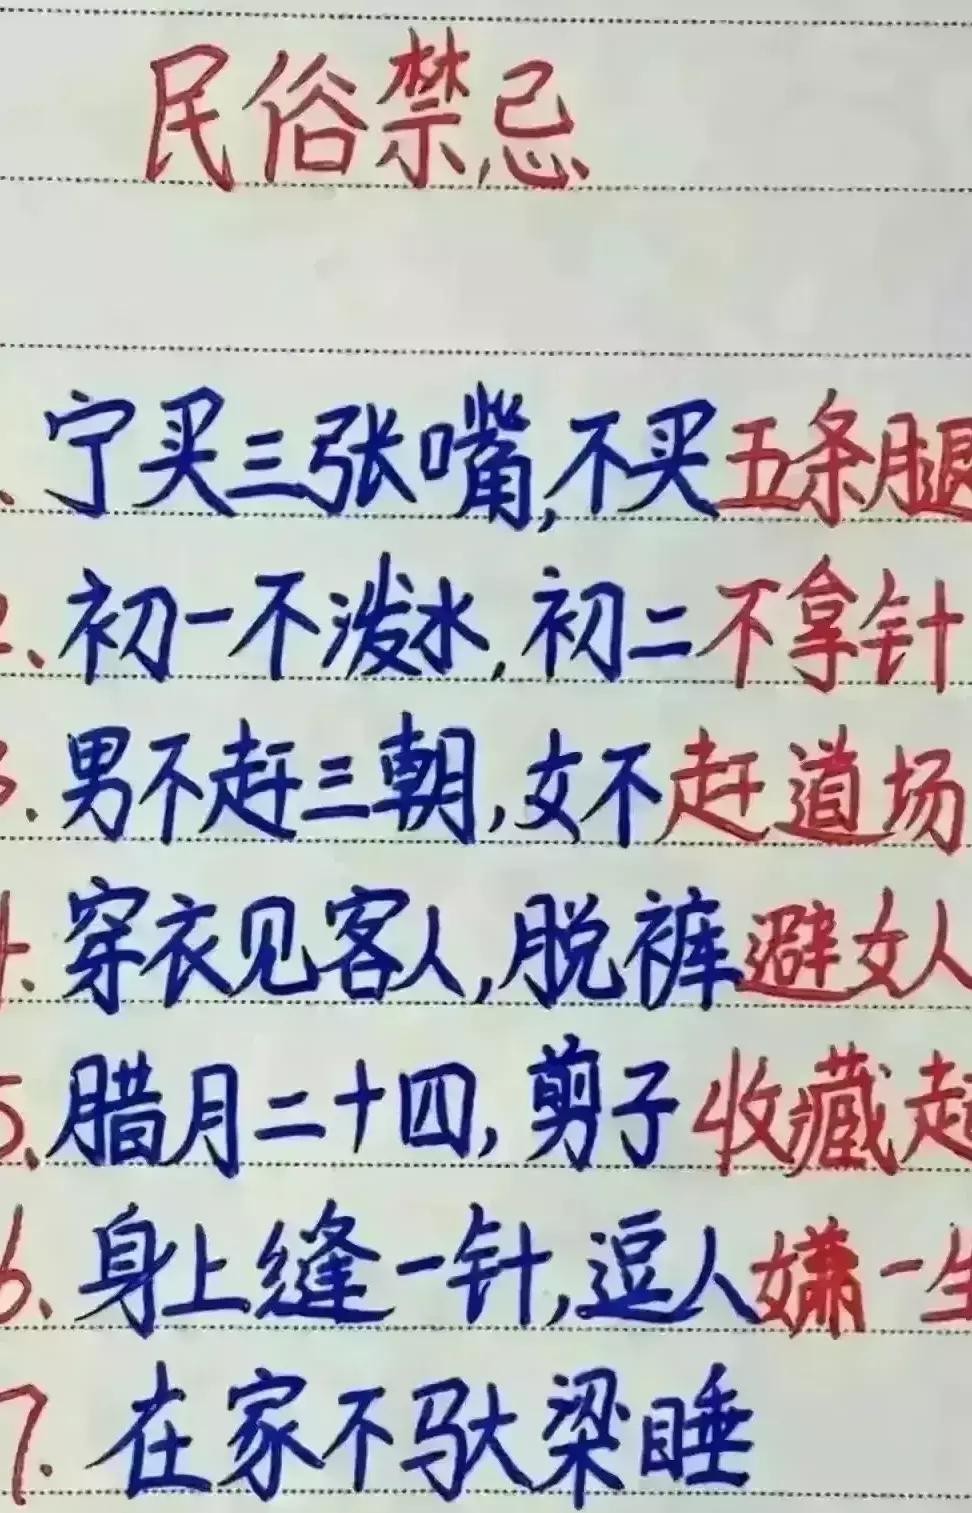 民俗禁忌
1、宁买三张嘴,不买五条腿
2、初一不泼水,初二不拿针
3.男不赶三朝,女不赶道场
4.穿衣见客人,脱裤避女人
5、腊月二十四,剪子收藏起
6、身上缝一针,逗人嫌一生
7.在家不驮梁睡